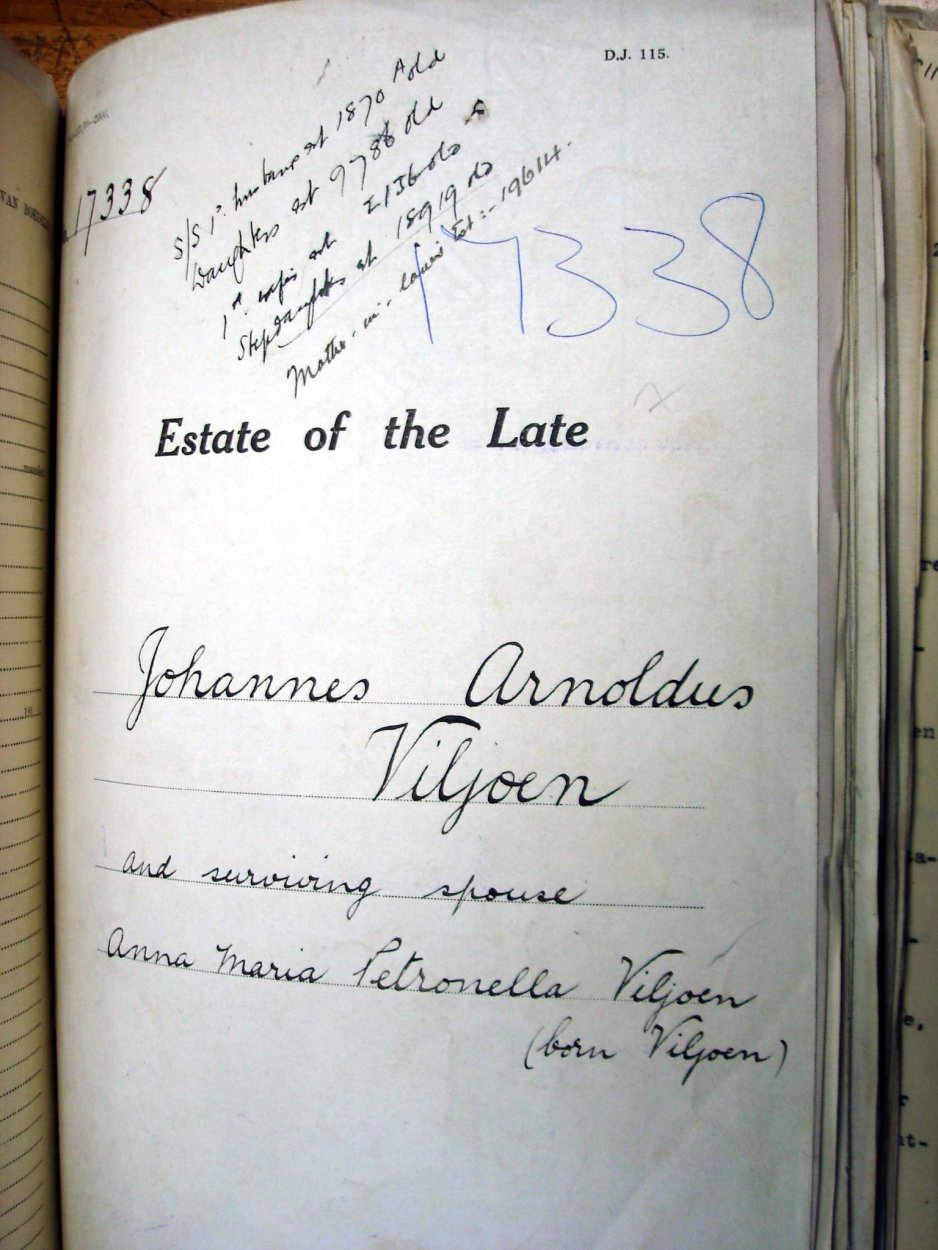 D.J. 115.
17338
S/S 1st husband est 1870 A old
Daughters est 9788 old
1st wifes est E1136 old
Stepdaughter est 18919 do
Mother-in-laws Est:- 19614.
17338
Estate of the Late
Johannes Arnoldus
Viljoen
and surviving spouse
Anna Maria Petronella Viljoen
(born Viljoen)